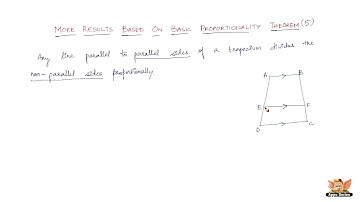 MORE RESULTS BASED ON BASIC PROPORTIONALITY THEOREM (5)
Any line parallel to parallel sides of a trapezium divides the
non-parallel sides proportionally.
A B
E F
D C